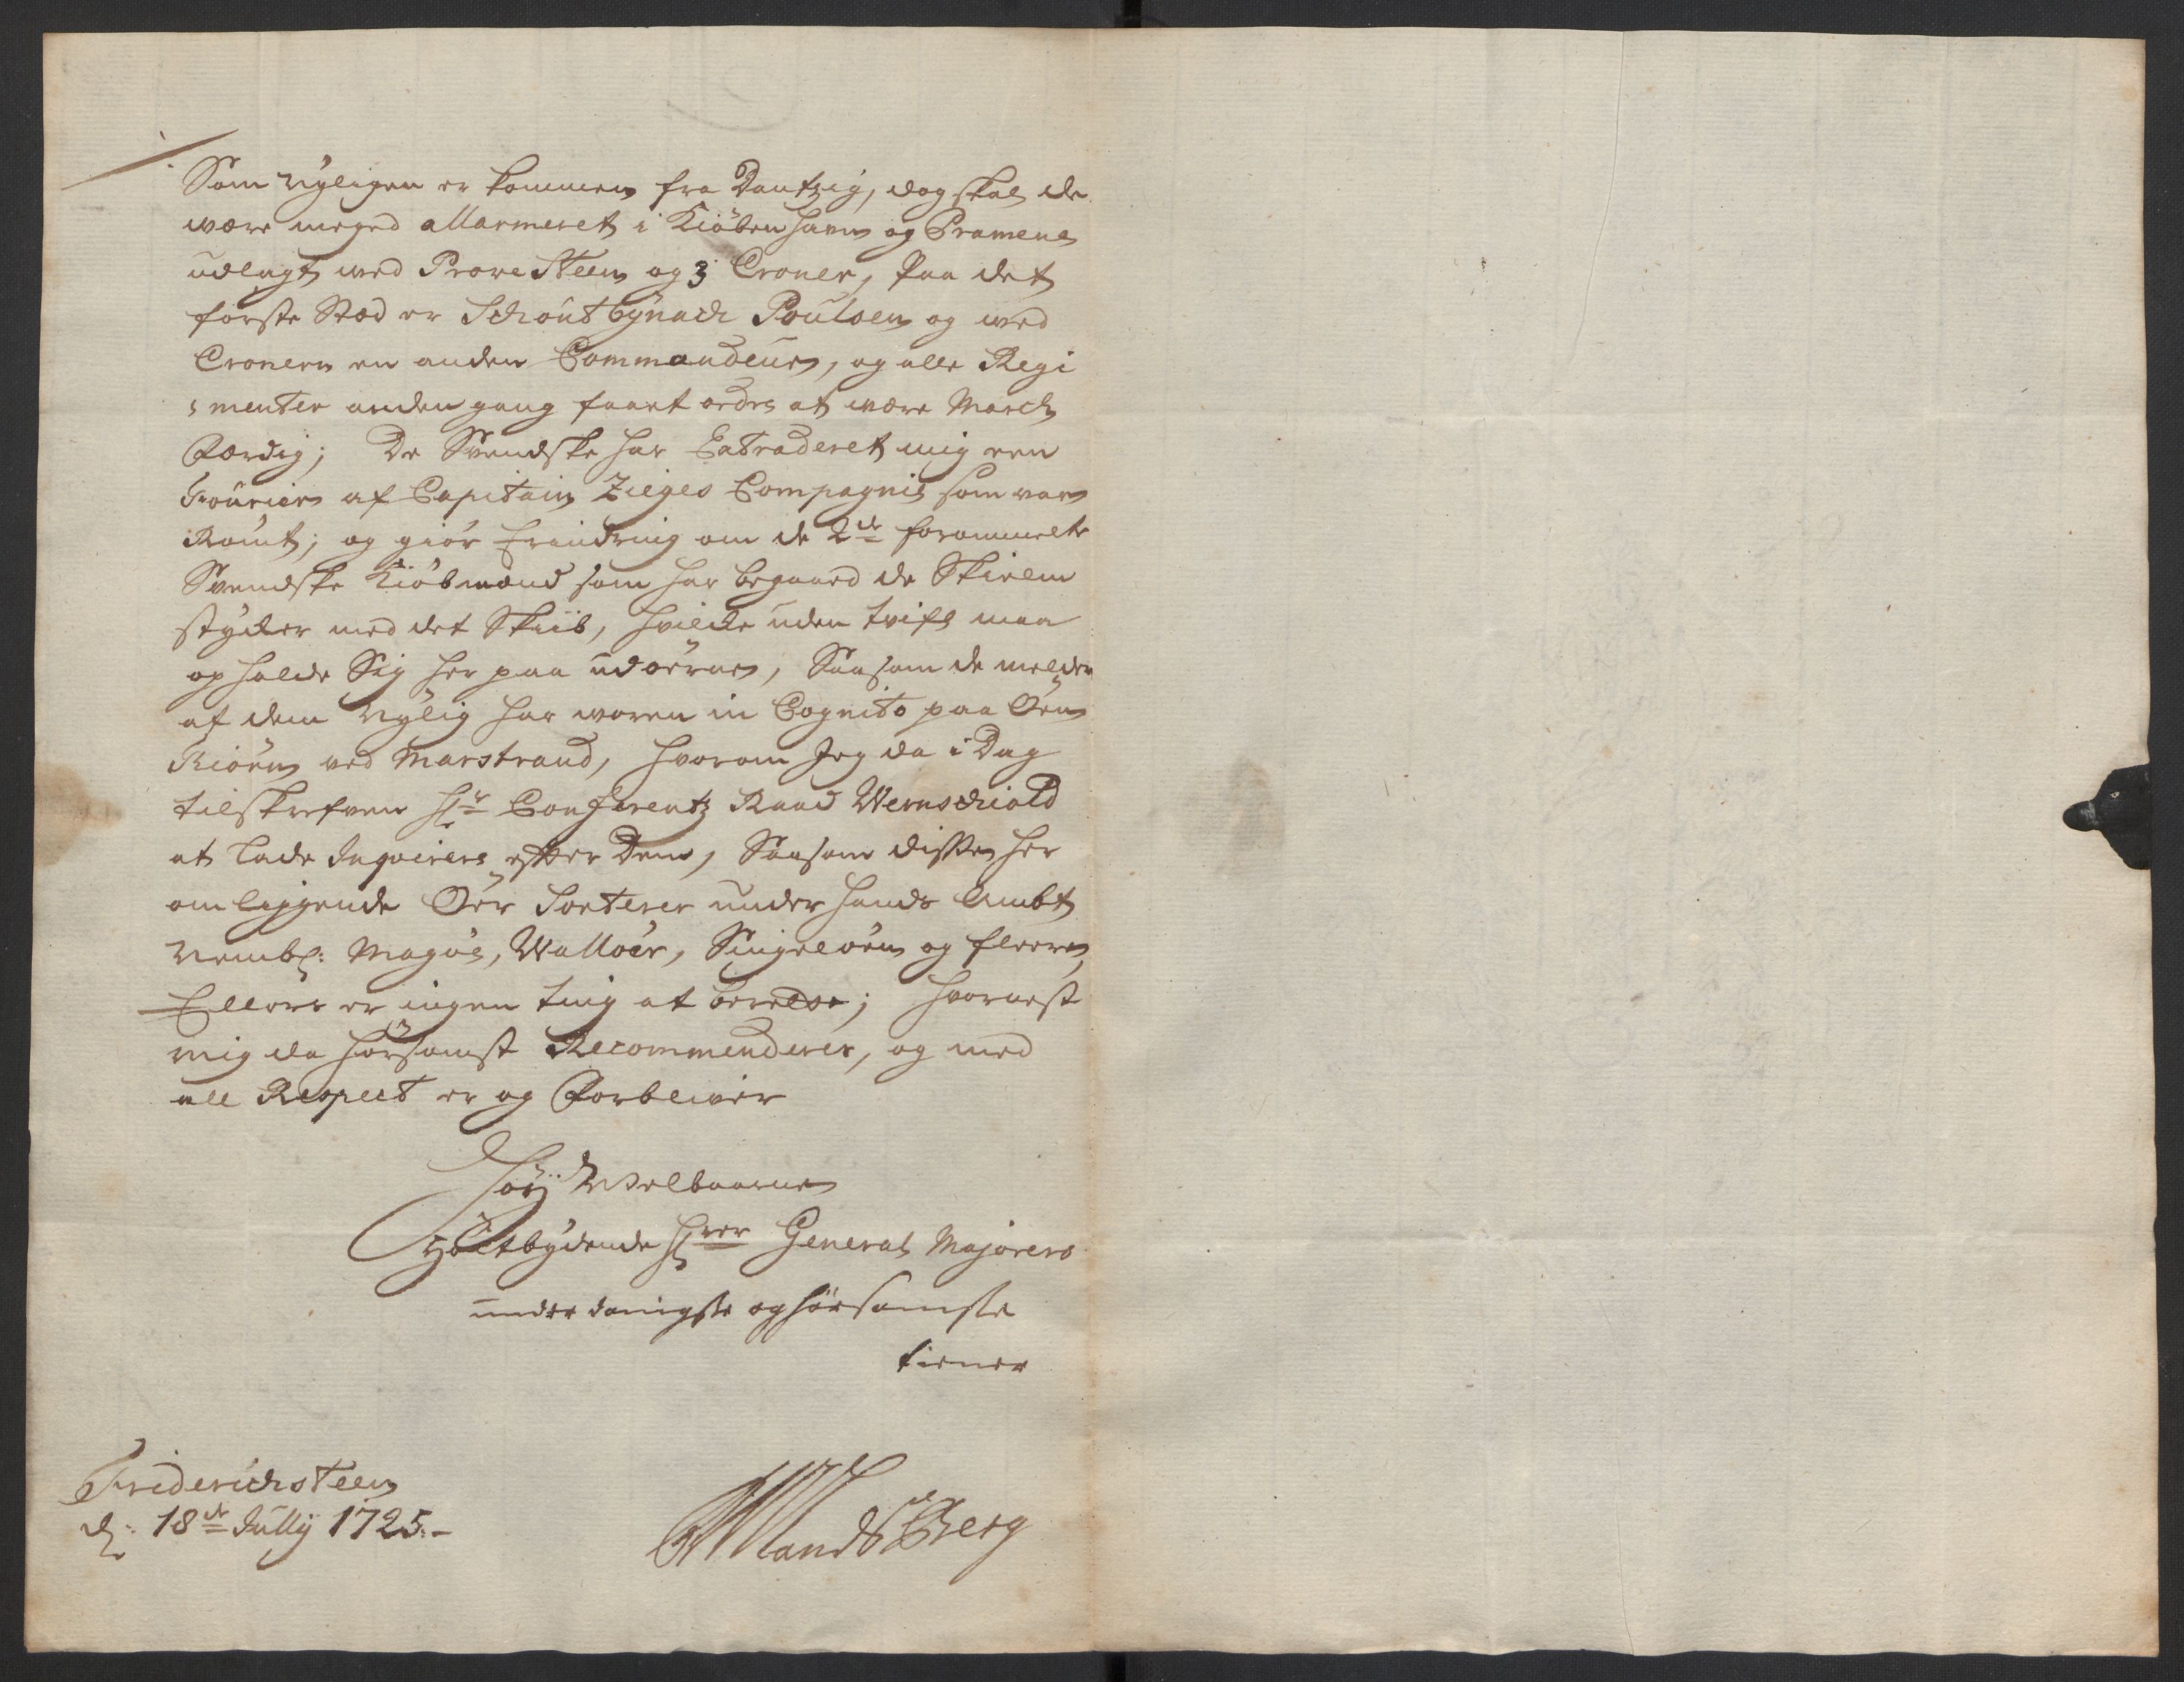 Som nyligen er kommen fra Dantzig, dog skal de
være meged allarmeret i Kiöbenhavn og Pramene
udlagt ved Prove Steen og 3 Croner, paa det
forste Stæd er Schoutbynach Poulsen og ved
Cronern en anden Commandeur, og alle Regi
menter anden gang faaet ordre at være March
Færdig; De Svendske har Extraderet mig een
Fourier af Capitain Zieges Compagnie som var
Römt; og giör Erindring om de 2de forommelte
Svendske Kiöbmænd som har begaaed de Skielm
stycker med det Skiib, hvilcke uden tvifl maa
opholde Sig her paa udöerne, Saasom de melder
af dem nylig har voren in Cognito paa Öen
Kiöen ved Marstrand, hvorom Jeg da i Dag
tilskrefven Hr Conferentz Raad Wernschiold
at lade Inqvirere efter Dem, Saasom disse her
omliggende Öer Sorterer under hands Ambt
Nembl: Magöe, Walloer, Singelöen og fleere,
Ellers er ingen ting at berette; hvornest
mig da hörsomst Recommenderer, og med
all Respect er og Forbliver
Höy Welbaarne
Höÿtbydende Hrer General Majorers
underdanigste og hörsomste
tiener
Friderichsteen
d: 18de Jully 1725.-
LandsBerg